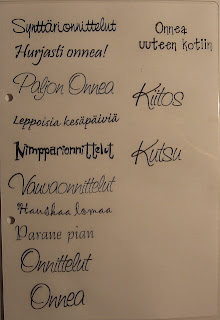 Synttärionnittelut
Hurjasti onnea!
Paljon Onnea
Leppoisia kesäpäiviä
Nimppärionnittelut
Vauvaonnittelut
Hauskaa lomaa
Parane pian
Onnittelut
Onnea
Onnea
uuteen kotiin
Kiitos
Kutsu